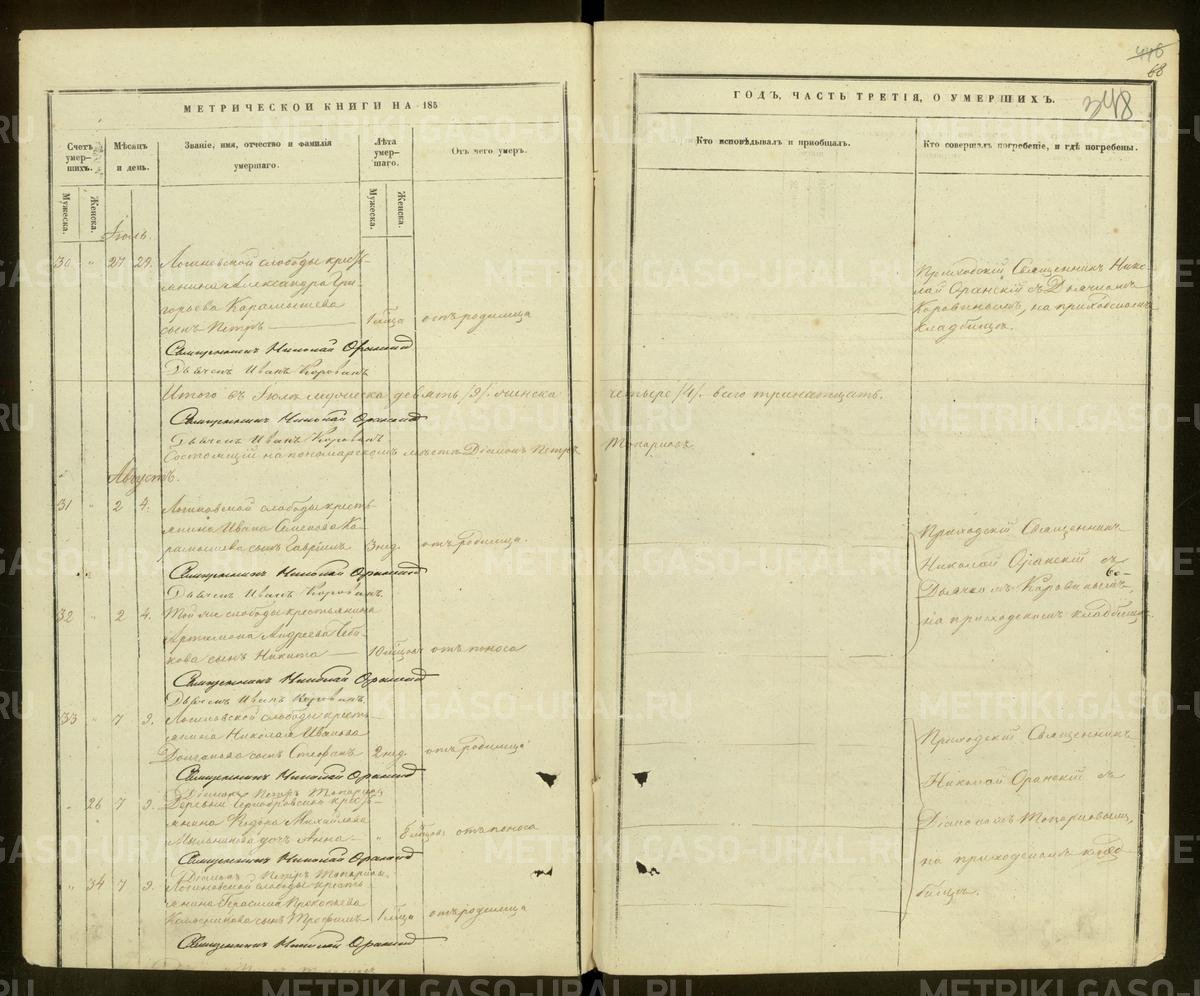 МЕТРИЧЕСКОЙ КНИГИ НА 185
Счетъ умер- шихъ.
Мѣсяцъ и день.
Званіе, имя, отчество и фамилія умершаго.
Лѣта умер- шаго.
Отъ чего умеръ.
Мужеска.
Женска.
Мужеска.
Женска.
Іюль.
30 " 27 29. Логиновской слободы кресть-
янина Александра Гри-
горьева Карамышева
сынъ Петръ 1 мѣсца отъ родимца
Священникъ Николай Оранскій
Дьячекъ Иванъ Коровинъ
Итого въ Іюлѣ мужеска девять /9/. женска
Священникъ Николай Оранскій
Дьячекъ Иванъ Коровинъ
Состоящій на пономарскомъ мѣстѣ Діаконъ Петръ
Августъ.
31 " 2 4. Логиновской слободы кресть-
янина Ивана Семенова Ка-
рамышева сынъ Гавріилъ 3 нед. отъ родимца.
Священникъ Николай Оранскій
Дьячекъ Иванъ Коровинъ
32 " 2 4. Той же слободы крестьянина
Артамона Андреева
кова сынъ Никита 10 мѣсцовъ отъ поноса
Священникъ Николай Оранскій
Дьячекъ Иванъ Коровинъ
33 " 7 9. Логиновской слободы кресть-
янина Николая Иванова
Долганова сынъ Стефанъ 2 нед. отъ родимца
Священникъ Николай Оранскій
Діаконъ Петръ
" 26 7 9. Деревни кресть-
янина Ѳедора Михайлова
Мыльникова дочь Анна " 8 мѣсцовъ отъ поноса
Священникъ Николай Оранскій
Діаконъ Петръ
" 34 7 9. Логиновской слободы кресть-
янина Герасима Прокопьева
сынъ Трофимъ 1 мѣсца отъ родимца
Священникъ Николай Оранскій
416
68
348
ГОДЪ, ЧАСТЬ ТРЕТІЯ, О УМЕРШИХЪ.
Кто исповѣдывалъ и пріобщалъ.
Кто совершалъ погребеніе, и гдѣ погребены.
Приходскій Священникъ Нико-
лай Оранскій съ Дьячкомъ
Коровинымъ, на приходскомъ
кладбищѣ.
четыре /4/. всего тринатцать.
Приходскій Священникъ
Николай Оранскій съ
Дьячкомъ Коровинымъ,
на приходскомъ кладбищѣ.
Приходскій Священникъ
Николай Оранскій съ
Діакономъ
на приходскомъ клад-
бищѣ.
METRIKI.GASO-URAL.RU